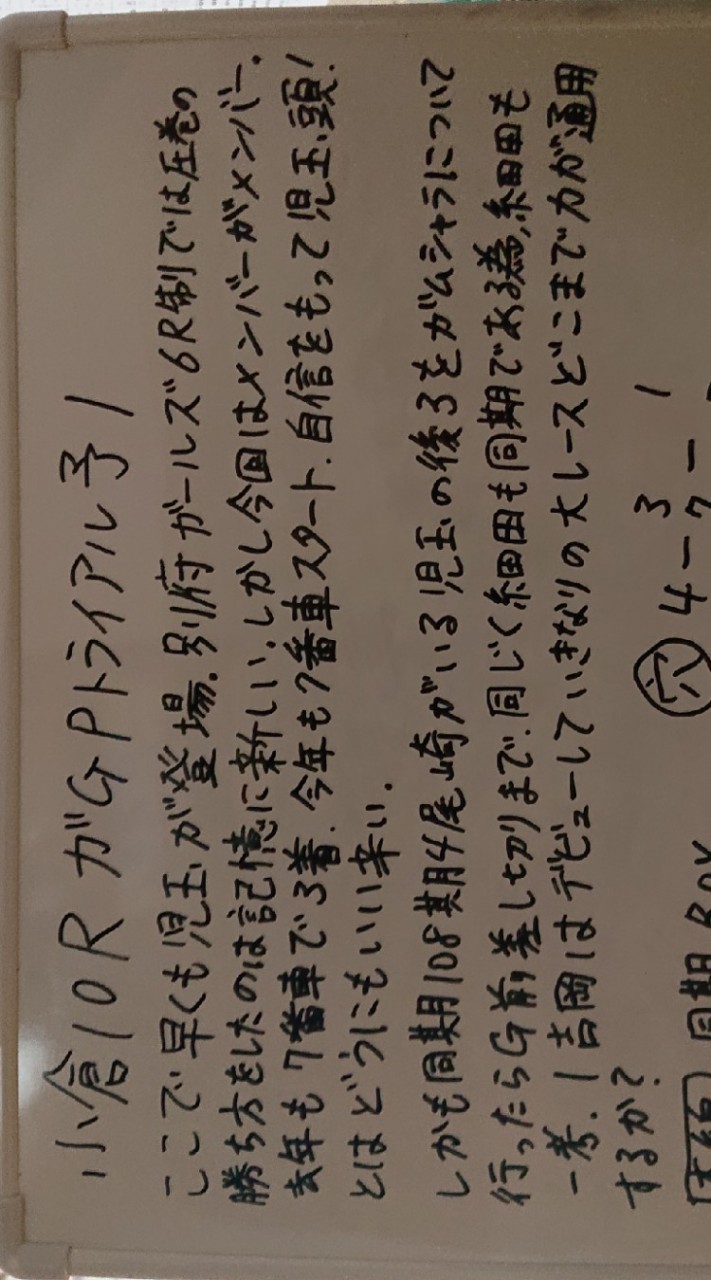 小倉10R ガGPトライアル予1
ここで早くも児玉が登場。別府ガールズ6R制では圧巻の
勝ち方をしたのは記憶に新しい。しかし今回はメンバーがメンバー。
去年も7番車で3着。今年も7番車スタート。自信をもって児玉頭!
とはどうにもいい辛い。
しかも同期108期4尾崎がいる児玉の後ろをガムシャラについて
行ったらG前差し切りまで。同じく細田も同期である為、細田も
一考。1吉岡はデビューしていきなりの大レースどこまで力が通用
するか?
同期BOX
穴 4-3 7-1